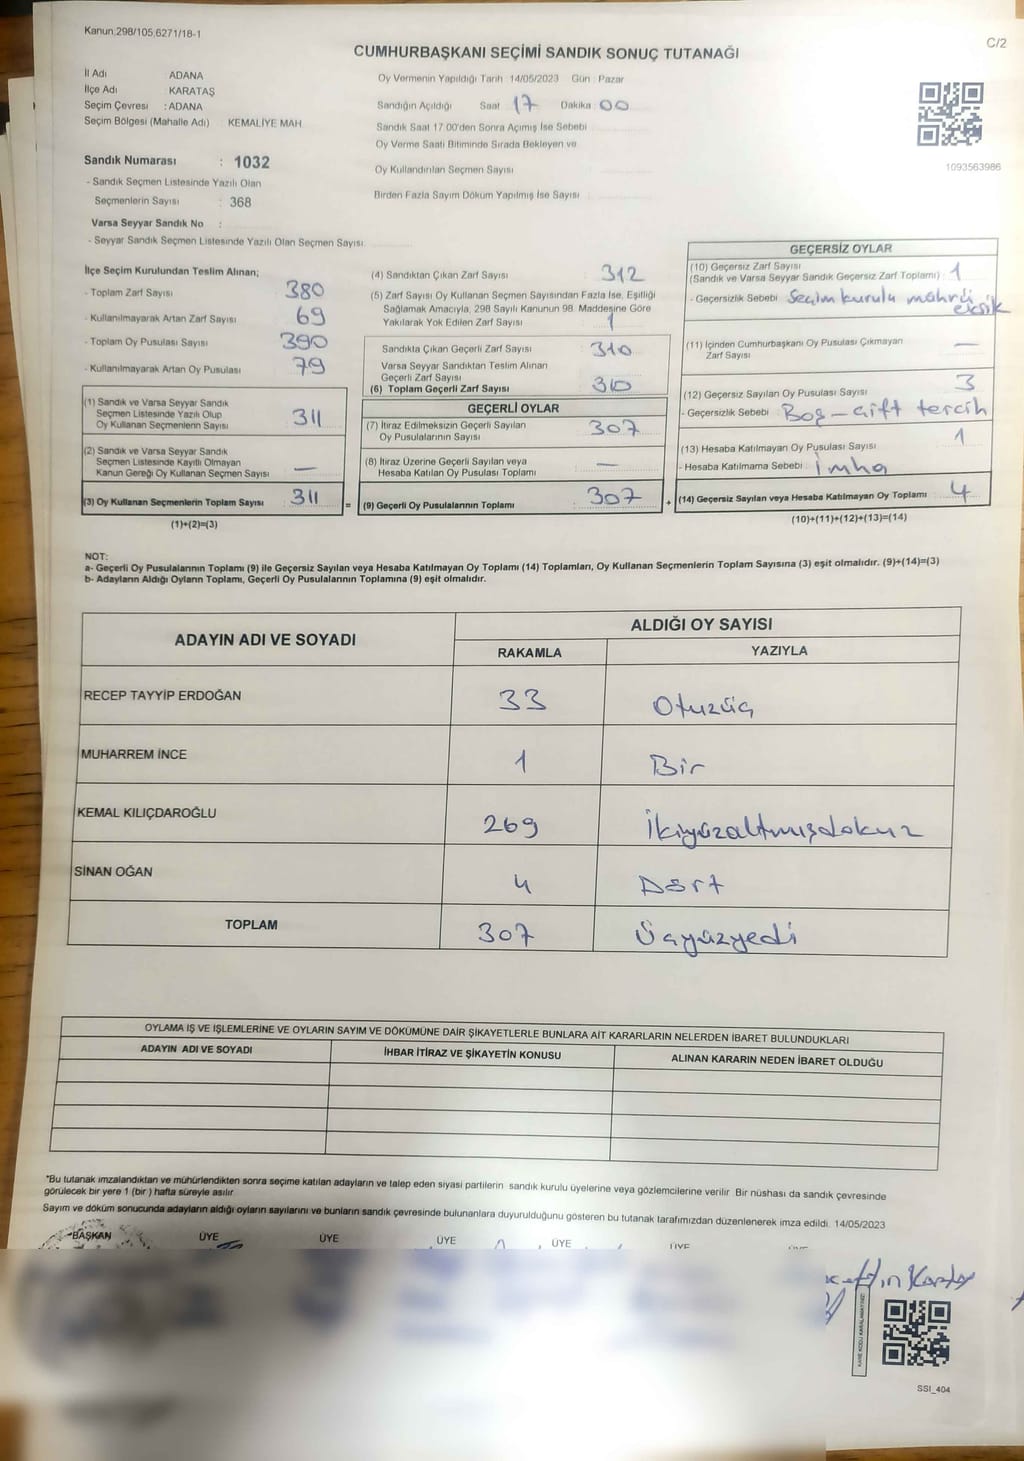 Kanun:298/105,6271/18-1
C/2
CUMHURBAŞKANI SEÇİMİ SANDIK SONUÇ TUTANAĞI
İl Adı ADANA
İlçe Adı : KARATAŞ
Seçim Çevresi : ADANA
Seçim Bölgesi (Mahalle Adı) : KEMALİYE MAH.
Sandık Numarası : 1032
- Sandık Seçmen Listesinde Yazılı Olan
Seçmenlerin Sayısı : 368
Varsa Seyyar Sandık No :
- Seyyar Sandık Seçmen Listesinde Yazılı Olan Seçmen Sayısı
Oy Vermenin Yapıldığı Tarih : 14/05/2023 Gün : Pazar
Sandığın Açıldığı Saat 17 Dakika 00
Sandık Saat 17:00'den Sonra Açımış İse Sebebi
Oy Verme Saati Bitiminde Sırada Bekleyen ve
Oy Kullandırılan Seçmen Sayısı
Birden Fazla Sayım Döküm Yapılmış İse Sayısı
1093563986
İlçe Seçim Kurulundan Teslim Alınan;
- Toplam Zarf Sayısı 380
- Kullanılmayarak Artan Zarf Sayısı 69
- Toplam Oy Pusulası Sayısı 390
- Kullanılmayarak Artan Oy Pusulası 79
(1) Sandık ve Varsa Seyyar Sandık
Seçmen Listesinde Yazılı Olup
Oy Kullanan Seçmenlerin Sayısı 311
(2) Sandık ve Varsa Seyyar Sandık
Seçmen Listesinde Kayıtlı Olmayan
Kanun Gereği Oy Kullanan Seçmen Sayısı —
(3) Oy Kullanan Seçmenlerin Toplam Sayısı 311 =
(1)+(2)=(3)
(4) Sandıktan Çıkan Zarf Sayısı 312
(5) Zarf Sayısı Oy Kullanan Seçmen Sayısından Fazla İse, Eşitliği
Sağlamak Amacıyla, 298 Sayılı Kanunun 98. Maddesine Göre
Yakılarak Yok Edilen Zarf Sayısı 1
Sandıkta Çıkan Geçerli Zarf Sayısı 310
Varsa Seyyar Sandıktan Teslim Alınan
Geçerli Zarf Sayısı
(6) Toplam Geçerli Zarf Sayısı 310
GEÇERLİ OYLAR
(7) İtiraz Edilmeksizin Geçerli Sayılan
Oy Pusulalarının Sayısı 307
(8) İtiraz Üzerine Geçerli Sayılan veya
Hesaba Katılan Oy Pusulası Toplamı —
(9) Geçerli Oy Pusulalarının Toplamı 307 +
GEÇERSİZ OYLAR
(10) Geçersiz Zarf Sayısı
(Sandık ve Varsa Seyyar Sandık Geçersiz Zarf Toplamı) : 1
- Geçersizlik Sebebi Seçim kurulu mührü
eksik
(11) İçinden Cumhurbaşkanı Oy Pusulası Çıkmayan
Zarf Sayısı —
(12) Geçersiz Sayılan Oy Pusulası Sayısı 3
- Geçersizlik Sebebi Boş – çift tercih
(13) Hesaba Katılmayan Oy Pusulası Sayısı 1
- Hesaba Katılmama Sebebi : İmha
(14) Geçersiz Sayılan veya Hesaba Katılmayan Oy Toplamı 4
(10)+(11)+(12)+(13)=(14)
NOT:
a- Geçerli Oy Pusulalarının Toplamı (9) ile Geçersiz Sayılan veya Hesaba Katılmayan Oy Toplamı (14) Toplamları, Oy Kullanan Seçmenlerin Toplam Sayısına (3) eşit olmalıdır. (9)+(14)=(3)
b- Adayların Aldığı Oyların Toplamı, Geçerli Oy Pusulalarının Toplamına (9) eşit olmalıdır.
ADAYIN ADI VE SOYADI
ALDIĞI OY SAYISI
RAKAMLA YAZIYLA
RECEP TAYYİP ERDOĞAN 33 Otuzüç
MUHARREM İNCE 1 Bir
KEMAL KILIÇDAROĞLU 269 İkiyüzaltmışdokuz
SİNAN OĞAN 4 Dört
TOPLAM 307 Üçyüzyedi
OYLAMA İŞ VE İŞLEMLERİNE VE OYLARIN SAYIM VE DÖKÜMÜNE DAİR ŞİKAYETLERLE BUNLARA AİT KARARLARIN NELERDEN İBARET BULUNDUKLARI
ADAYIN ADI VE SOYADI İHBAR İTİRAZ VE ŞİKAYETİN KONUSU ALINAN KARARIN NEDEN İBARET OLDUĞU
*Bu tutanak imzalandıktan ve mühürlendikten sonra seçime katılan adayların ve talep eden siyasi partilerin sandık kurulu üyelerine veya gözlemcilerine verilir. Bir nüshası da sandık çevresinde
görülecek bir yere 1 (bir ) hafta süreyle asılır.
Sayım ve döküm sonucunda adayların aldığı oyların sayılarını ve bunların sandık çevresinde bulunanlara duyurulduğunu gösteren bu tutanak tarafımızdan düzenlenerek imza edildi. 14/05/2023
BAŞKAN ÜYE ÜYE ÜYE ÜYE ÜYE
KARE KODU KARALAMAYINIZ!
SSI_404